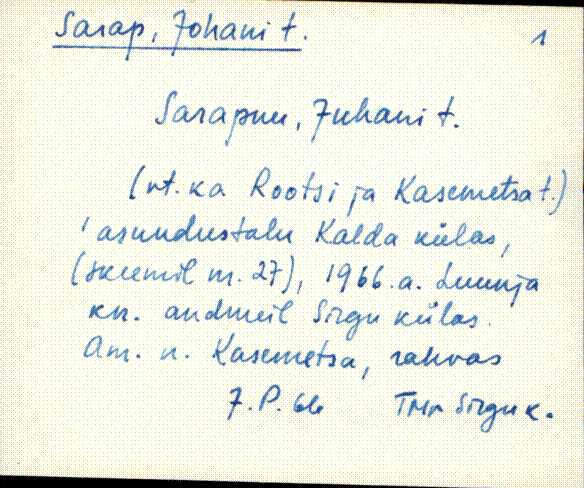 Sarap, Johani t.
1
Sarapuu, Juhani t.
(vt. ka Rootsi ja Kasemetsa t.)
asundustalu Kalda külas,
(skeemil nr. 27), 1966. a. Luunja
kn. andmeil Sirgu külas.
Am. n. Kasemetsa, rahvas
J. P. 66 TMr Sirgu k.